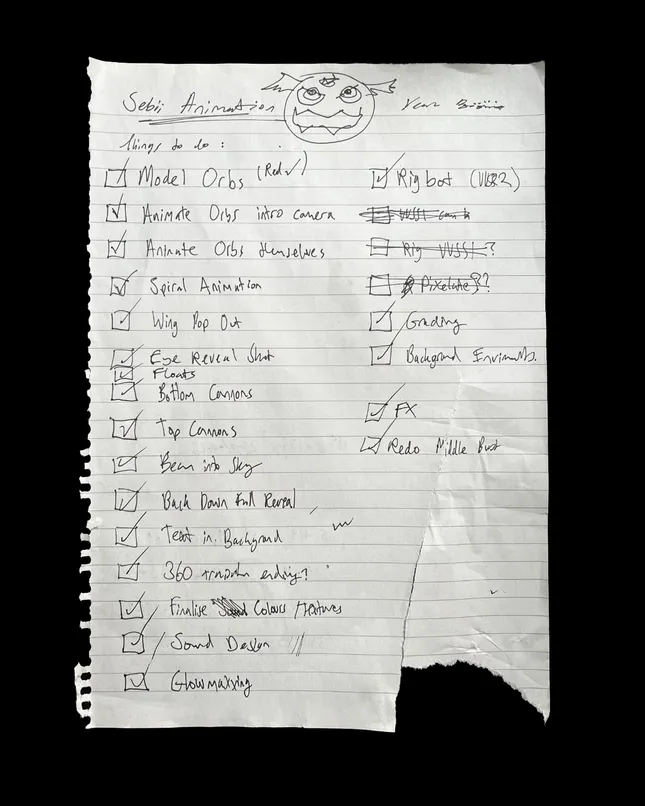 Sebii Animation
Year
Things to do :
Model Orbs (Red ✓)
Animate Orbs intro camera
Animate Orbs themselves
Spiral Animation
Wing Pop Out
Eye Reveal Shot
Floats
Bottom Cannons
Top Cannons
Beam into Sky
Back Down Full Reveal
Text in Background
360 ending?
Finalise Colours / Textures
Sound Design
Glowmaxxing
Rig bot
Rig VVSS1 ?
Pixelate ??
Grading
FX
Redo Middle